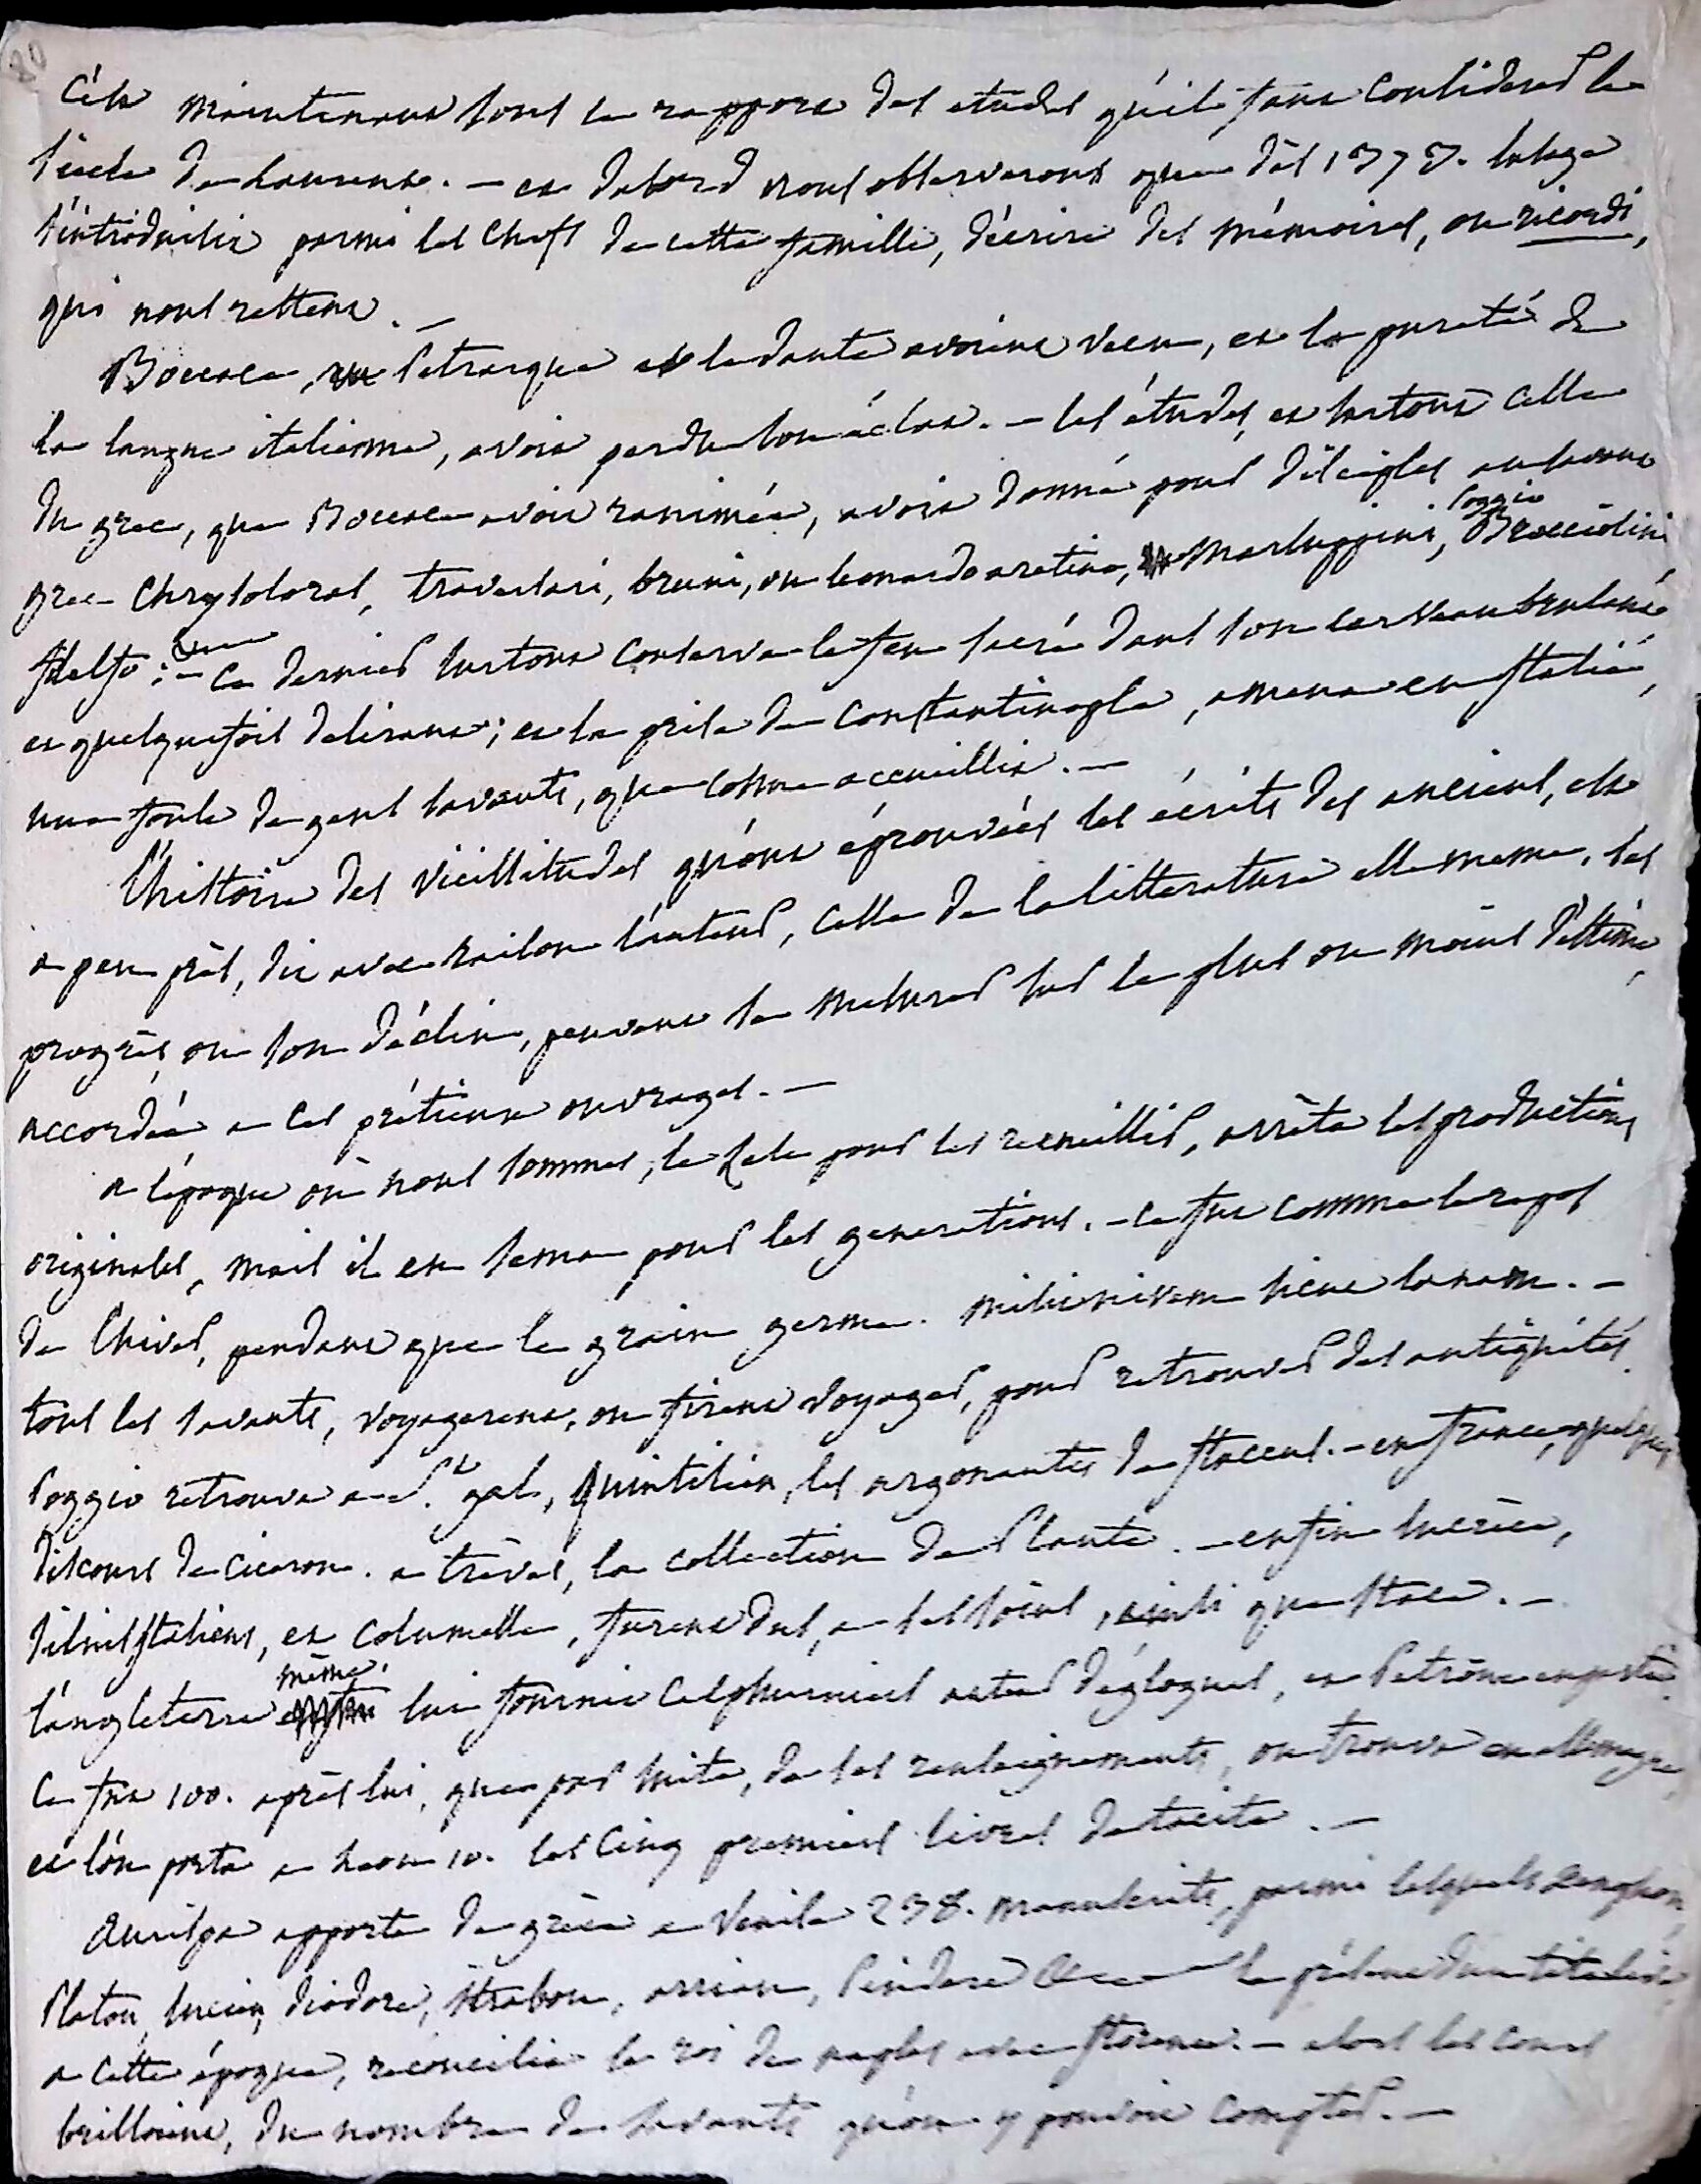 80
C'est maintenant sous le rapport des etudes qu'il faut considerer le
siecle de Laurent. – et dabord nous observerons que dès 1373. l'usage
s'introduisit parmi les chefs de cette famille, d'écrire des mémoires, ou ricordi,
qui nous restent. –
Boccace, Petrarque et le dante avoient vecu, et la pureté de
la langue italienne, avoit perdu son éclat. – les études, et surtout celle
du grec, que Boccace avoit ranimée, avoit donné pour disciples au savant
grec Chrysoloras, traversari, bruni, ou leonardo aretino, Marsuppini, Poggio Bracciolini,
filelfo; – Ce dernier surtout conserva le feu sacré dans son cerveau brulant
et quelquefois delirant; et la prise de Constantinople, amena en Italie,
une foule de gens savants, que Cosme accueillit. –
L'histoire des vicissitudes qu'ont éprouvées les écrits des anciens, est
a peu près, dit avec raison l'auteur, celle de la litterature elle meme, ses
progrès, ou son déclin, peuvent se mesurer sur le plus ou moins d'estime,
accordée a ces prétieux ouvrages. –
a l'époque où nous sommes, le zele pour les recueillir, arrêta les productions
originales, mais il en sema pour les generations. – ce fut comme le repos
de l'hiver, pendant que le grain germe. –
tous les savants, voyagerent, ou firent voyager, pour retrouver des antiquités.
Poggio retrouva a St. gal, Quintilien, les argonautes de flaccus. – en france, quelques
discours de Ciceron. a trèves, la collection de Plaute. – enfin lucrèce,
silius Italicus, et Columelle, furent dus, a ses soins, ainsi que Stace. –
l'angleterre même, lui fournit Calphurnius auteur d'églogues, et Petrone
Ce fut 100. après lui, que par suite, de ses renseignements, on trouva en allemagne,
et l'on porta a Leon 10. les Cinq premiers livres de tacite. –
Aurispa apporta de grèce a Venise 238. manuscrits, parmi lesquels Xenophon,
Platon, lucien, diodore, Strabon, arrian, Pindare &c le présent d'un tite live,
a cette époque, réconcilia le roi de naples avec florence. – alors les cours
brilloient, du nombre de savants qu'on y pouvoit compter. –